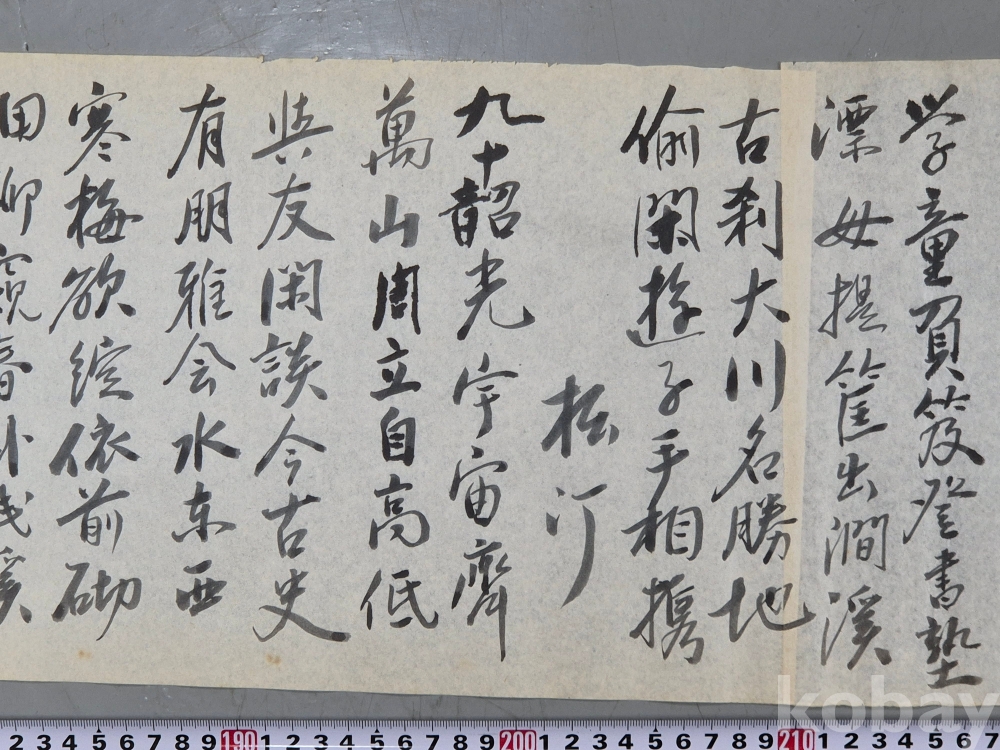 学童負笈登書塾
漂母提筐出澗溪
古刹大川名勝地
偸閑遊子手相携
松汀
九十韶光宇宙齊
萬山周立自高低
與友閑談今古史
有朋雅会水东西
寒梅欲綻依前砌
田 窺春 淺溪
kobay
2 3 4 5 6 7 8 9 190 1 2 3 4 5 6 7 8 9 200 1 2 3 4 5 6 7 8 9 210 1 2 3 4 5 6 7